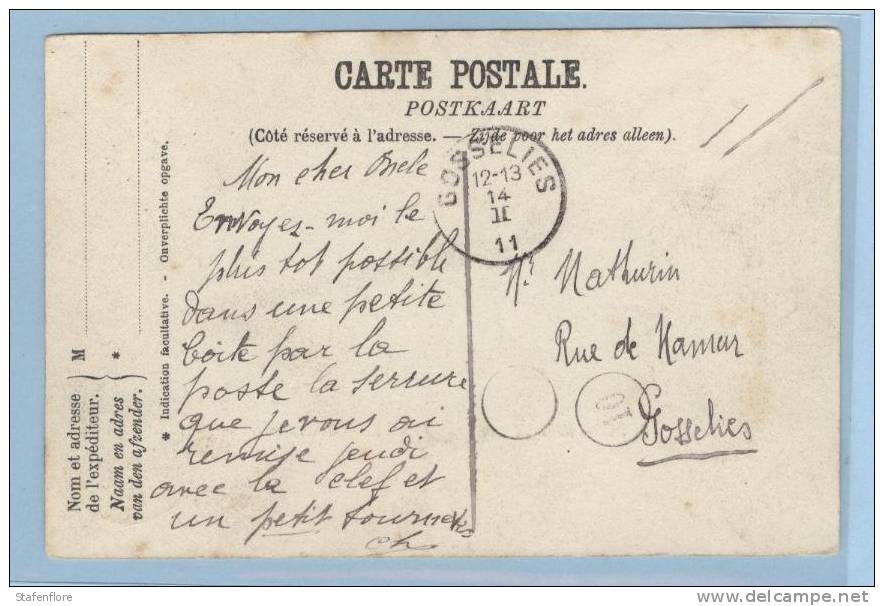 CARTE POSTALE.
POSTKAART
(Côté réservé à l'adresse. — Zijde voor het adres alleen).
GOSSELIES
12-13
14
II
11
Mon cher Oncle
Envoyez-moi le
plus tot possible
dans une petite
boite par la
poste la serrure
que je vous ai
remise jeudi
avec la clef et
un petit
Ch
Mr Mathurin
Rue de Namur
Gosselies
10
* Indication facultative. - Onverplichte opgave.
M *
Nom et adresse
de l'expéditeur.
Naam en adres
van den afzender.
Stafenflore
delcampe.net